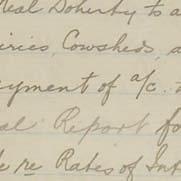 Neal Doherty to a
iries, Cowsheds, a
ayment of a/c.
al Report fo
re Rates of Int